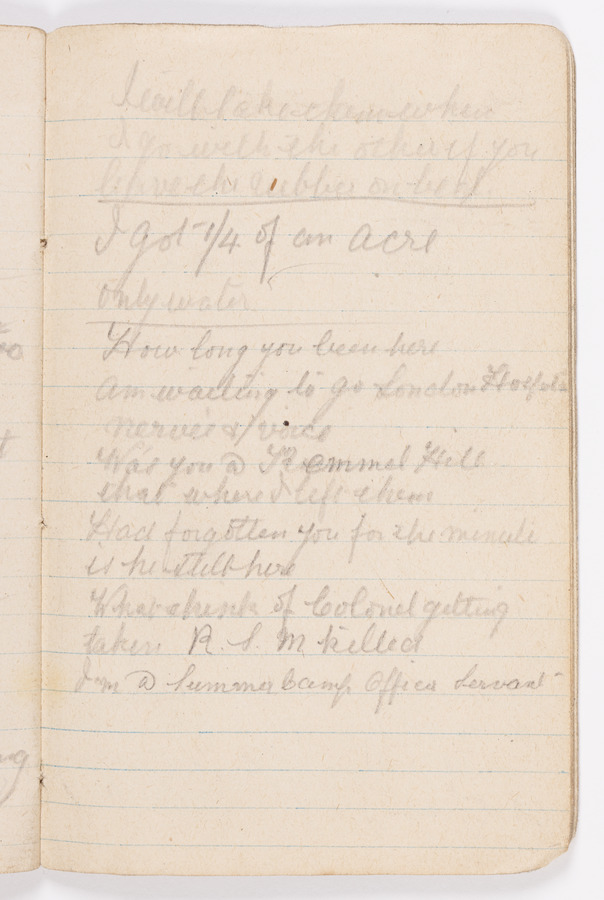 I will take them when
I go with the other if you
leave the rubber on bed
I got 1/4 of an acre
only water
How long you been here
am waiting to go London Hospital
nerves & voice
Was you @ Kemmel Hill
that where I left them
Had forgotten you for the minute
is he still here
What of Colonel getting
taken R. S. M killed
I'm @ Summer Camp Office Servant